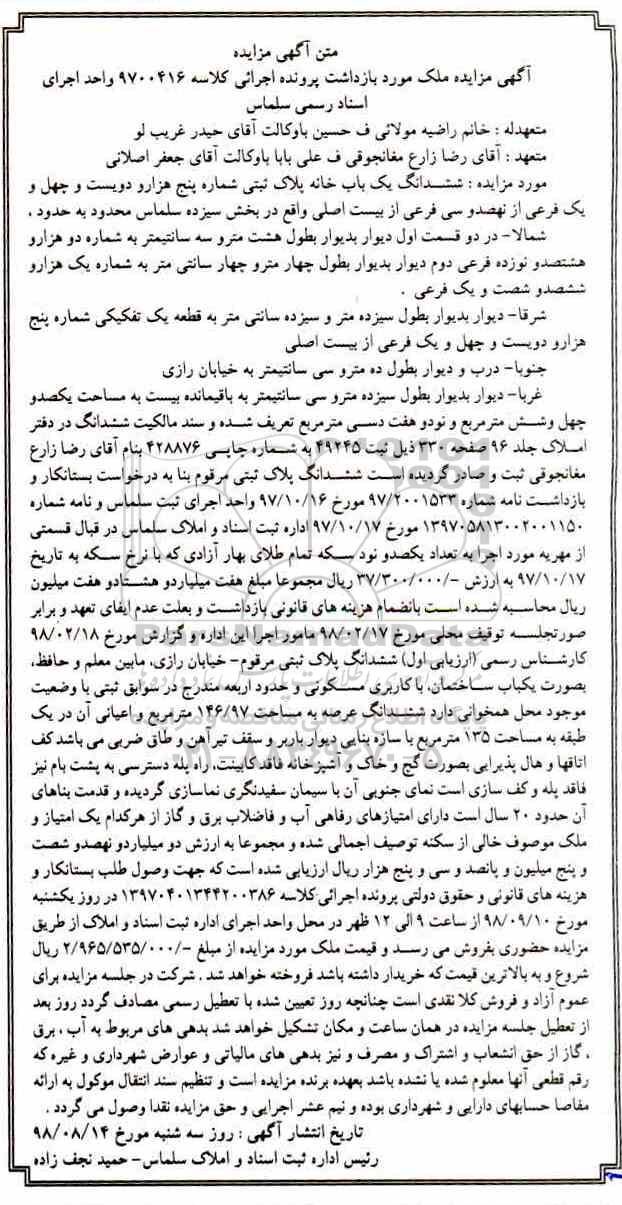 متن آگهی مزایده
آگهی مزایده ملک مورد بازداشت پرونده اجرائی کلاسه ۹۷۰۰۴۱۶ واحد اجرای
اسناد رسمی سلماس
متعهدله : خانم راضیه مولائی ف حسین باوکالت آقای حیدر غریب لو
متعهد : آقای رضا زارع مغانجوقی ف علی بابا باوکالت آقای جعفر اصلانی
مورد مزایده : ششدانگ یک باب خانه پلاک ثبتی شماره پنج هزارو دویست و چهل و
یک فرعی از نهصدو سی فرعی از بیست اصلی واقع در بخش سیزده سلماس محدود به حدود ،
شمالا- در دو قسمت اول دیوار بدیوار بطول هشت مترو سه سانتیمتر به شماره دو هزارو
هشتصدو نوزده فرعی دوم دیوار بدیوار بطول چهار مترو چهار سانتی متر به شماره یک هزارو
ششصدو شصت و یک فرعی .
شرقا- دیوار بدیوار بطول سیزده متر و سیزده سانتی متر به قطعه یک تفکیکی شماره پنج
هزارو دویست و چهل و یک فرعی از بیست اصلی
جنوبا- درب و دیوار بطول ده مترو سی سانتیمتر به خیابان رازی
غربا- دیوار بدیوار بطول سیزده مترو سی سانتیمتر به باقیمانده بیست به مساحت یکصدو
چهل وشش مترمربع و نودو هفت دسی مترمربع تعریف شده و سند مالکیت ششدانگ در دفتر
املاک جلد ۹۶ صفحه ۳۳۰ ذیل ثبت ۴۹۲۴۵ به شماره چاپی ۴۲۸۸۷۶ بنام آقای رضا زارع
مغانجوقی ثبت و صادر گردیده است ششدانگ پلاک ثبتی مرقوم بنا به درخواست بستانکار و
بازداشت نامه شماره ۹۷/۲۰۰۱۵۳۳ مورخ ۹۷/۱۰/۱۶ واحد اجرای ثبت سلماس و نامه شماره
۱۳۹۷۰۵۸۱۳۰۰۲۰۰۱۱۵۰ مورخ ۹۷/۱۰/۱۷ اداره ثبت اسناد و املاک سلماس در قبال قسمتی
از مهریه مورد اجرا به تعداد یکصدو نود سکه تمام طلای بهار آزادی که با نرخ سکه به تاریخ
۹۷/۱۰/۱۷ به ارزش -/۳۷/۳۰۰/۰۰۰ ریال مجموعا مبلغ هفت میلیاردو هشتادو هفت میلیون
ریال محاسبه شده است بانضمام هزینه های قانونی بازداشت و بعلت عدم ایفای تعهد و برابر
صورتجلسه توقیف محلی مورخ ۹۸/۰۲/۱۷ مامور اجرا این اداره و گزارش مورخ ۹۸/۰۲/۱۸
کارشناس رسمی (ارزیابی اول) ششدانگ پلاک ثبتی مرقوم- خیابان رازی، مابین معلم و حافظ،
بصورت یکباب ساختمان، با کاربری مسکونی و حدود اربعه مندرج در سوابق ثبتی با وضعیت
موجود محل همخوانی دارد ششدانگ عرصه به مساحت ۱۴۶/۹۷ مترمربع و اعیانی آن در یک
طبقه به مساحت ۱۳۵ مترمربع با سازه بنایی دیوار باربر و سقف تیرآهن و طاق ضربی می باشد کف
اتاقها و هال پذیرایی بصورت گچ و خاک و آشپزخانه فاقد کابینت، راه پله دسترسی به پشت بام نیز
فاقد پله و کف سازی است نمای جنوبی آن با سیمان سفیدنگری نماسازی گردیده و قدمت بناهای
آن حدود ۲۰ سال است دارای امتیازهای رفاهی آب و فاضلاب برق و گاز از هرکدام یک امتیاز و
ملک موصوف خالی از سکنه توصیف اجمالی شده و مجموعا به ارزش دو میلیاردو نهصدو شصت
و پنج میلیون و پانصد و سی و پنج هزار ریال ارزیابی شده است که جهت وصول طلب بستانکار و
هزینه های قانونی و حقوق دولتی پرونده اجرائی کلاسه ۱۳۹۷۰۴۰۱۳۴۴۲۰۰۳۸۶ در روز یکشنبه
مورخ ۹۸/۰۹/۱۰ از ساعت ۹ الی ۱۲ ظهر در محل واحد اجرای اداره ثبت اسناد و املاک از طریق
مزایده حضوری بفروش می رسد و قیمت ملک مورد مزایده از مبلغ -/۲/۹۶۵/۵۳۵/۰۰۰ ریال
شروع و به بالاترین قیمت که خریدار داشته باشد فروخته خواهد شد . شرکت در جلسه مزایده برای
عموم آزاد و فروش کلا نقدی است چنانچه روز تعیین شده با تعطیل رسمی مصادف گردد روز بعد
از تعطیل جلسه مزایده در همان ساعت و مکان تشکیل خواهد شد بدهی های مربوط به آب ، برق
، گاز از حق انشعاب و اشتراک و مصرف و نیز بدهی های مالیاتی و عوارض شهرداری و غیره که
رقم قطعی آنها معلوم شده یا نشده باشد بعهده برنده مزایده است و تنظیم سند انتقال موکول به ارائه
مفاصا حسابهای دارایی و شهرداری بوده و نیم عشر اجرایی و حق مزایده نقدا وصول می گردد .
تاریخ انتشار آگهی : روز سه شنبه مورخ ۹۸/۰۸/۱۴
رئیس اداره ثبت اسناد و املاک سلماس- حمید نجف زاده